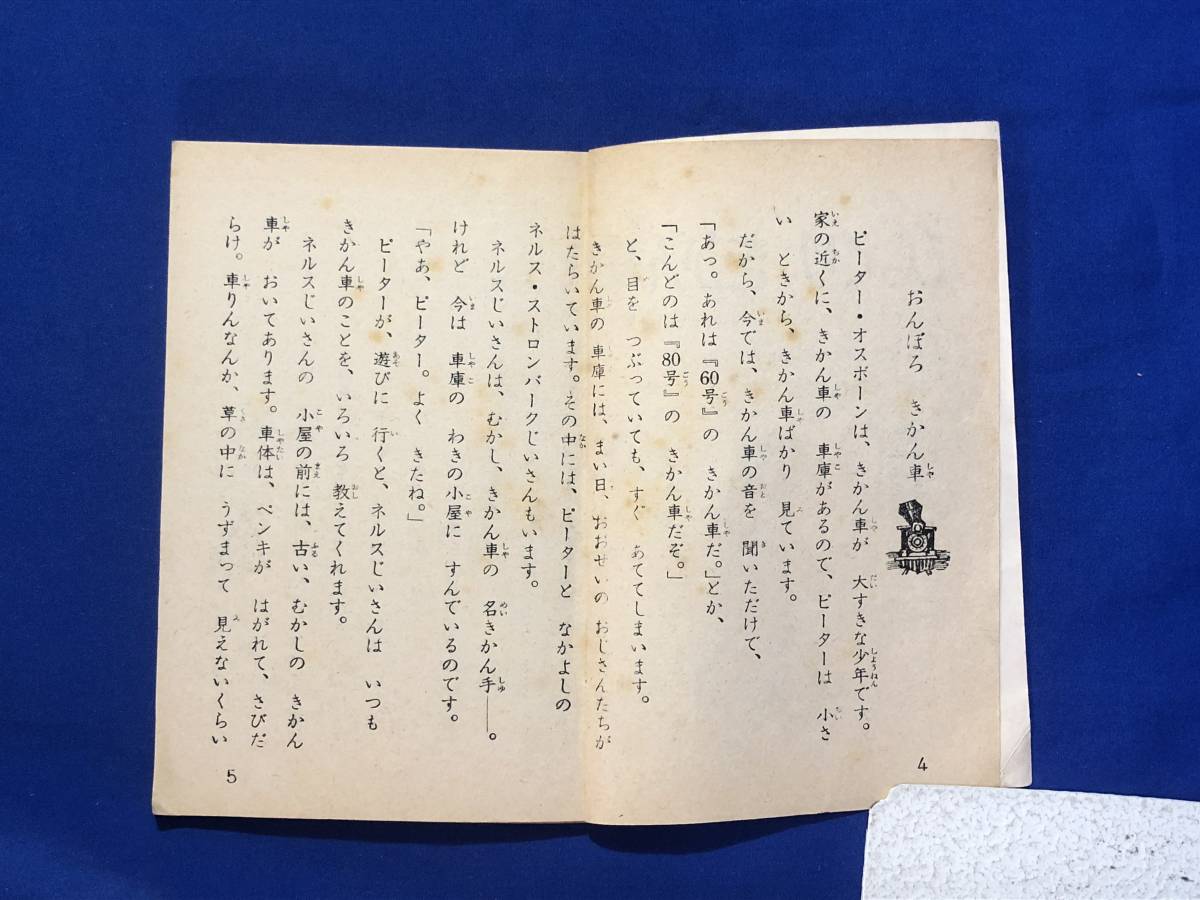 おんぼろ きかん車
ピーター・オスボーンは、きかん車が 大すきな少年です。
家の近くに、きかん車の 車庫があるので、ピーターは 小さ
い ときから、きかん車ばかり 見ています。
だから、今では、きかん車の音を 聞いただけで、
「あっ。あれは『60号』の きかん車だ。」とか、
「こんどのは『80号』の きかん車だぞ。」
と、目を つぶっていても、すぐ あててしまいます。
きかん車の 車庫には、まい日、おおぜいの おじさんたちが
はたらいています。その中には、ピーターと なかよしの
ネルス・ストロンバークじいさんもいます。
ネルスじいさんは、むかし、きかん車の 名きかん手――。
けれど 今は 車庫の わきの小屋に すんでいるのです。
「やあ、ピーター。よく きたね。」
ピーターが、遊びに 行くと、ネルスじいさんは いつも
きかん車のことを、いろいろ 教えてくれます。
ネルスじいさんの 小屋の前には、古い、むかしの きかん
車が おいてあります。車体は、ペンキが はがれて、さびだ
らけ。車りんなんか、草の中に うずまって 見えないくらい
4
5